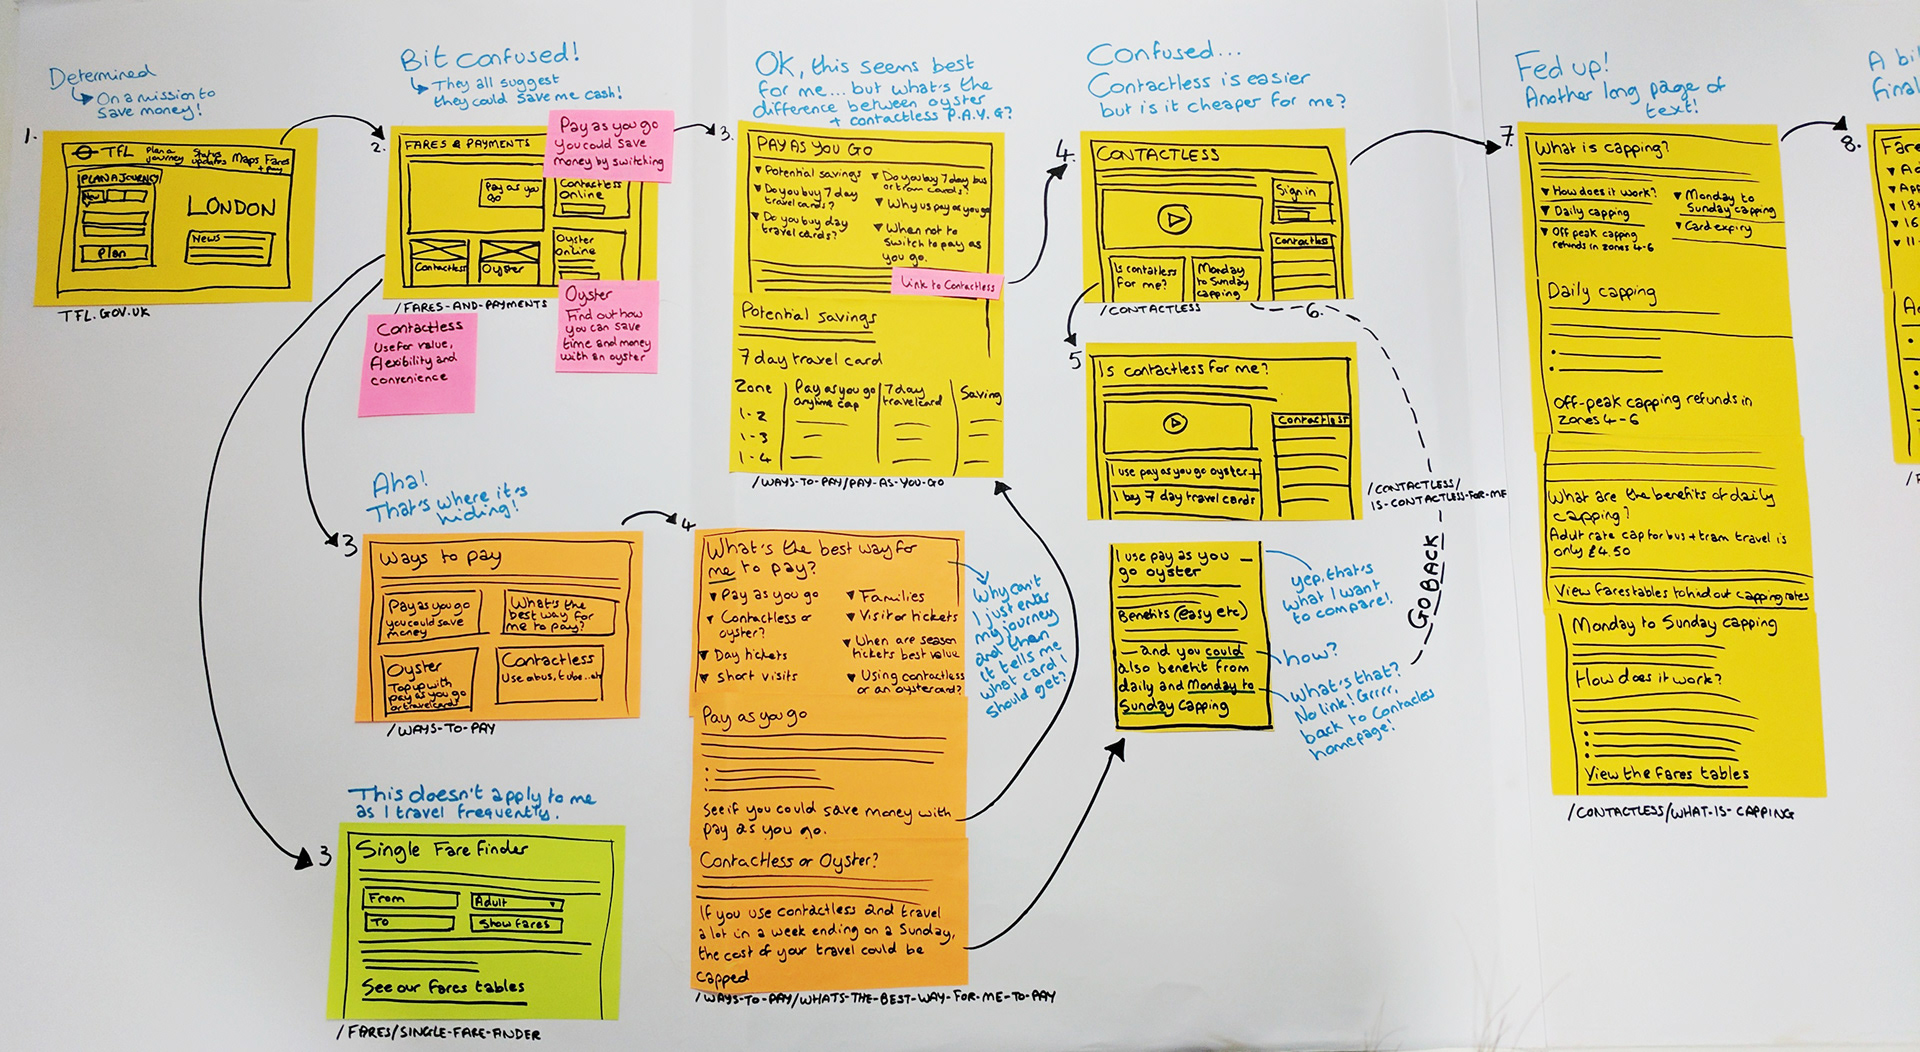 Determined
On a mission to
save money!
1.
TFL
Plan a
journey
Status
updates
Maps
Fares
+ pay
PLAN A JOURNEY
LONDON
News
Plan
TFL.GOV.UK
Bit confused!
They all suggest
they could save me cash!
2.
FARES & PAYMENTS
Pay as you
go
Contactless
Online
Oyster
Online
Contactless
Oyster
/FARES-AND-PAYMENTS
Pay as you go
You could save
money by switching
Oyster
Find out how
you can save
time and money
with an oyster
Contactless
Use for value,
flexibility and
convenience
OK, this seems best
for me... but what's the
difference between oyster
+ contactless P.A.Y.G?
3.
PAY AS YOU GO
Potential savings
Do you buy 7 day
travel cards?
Do you buy day
travel cards?
Do you buy 7 day bus
or tram cards?
Why us pay as you go
When not to
switch to pay as
you go.
Link to Contactless
Potential savings
7 day travel card
Zone
Pay as you go
anytime cap
7 day
travelcard
Saving
1-2
1-3
1-4
/WAYS-TO-PAY/PAY-AS-YOU-GO
Confused...
Contactless is easier
but is it cheaper for me?
4.
CONTACTLESS
Sign in
Contactless
Is contatless
for me?
Monday
to Sunday
capping
/CONTACTLESS
6.
5
Is contactless for me?
Contactless
I use pay as you go oyster +
I buy 7 day travel cards
/CONTACTLESS/
IS-CONTACTLESS-FOR-ME
GO BACK
I use pay as you
go oyster
Benefits (easy etc)
- and you could
also benefit from
daily and Monday to
Sunday capping
yep, that's
what I want
to compare!
how?
What's that?
No link! Grrrr,
back to Contacless
homepage!
Fed up!
Another long page of
text!
7.
What is capping?
How does it work?
Daily capping
Off peak capping
refunds in zones 4-6
Monday to
Sunday capping
Card expiry
Daily capping
Off-peak capping refunds in
zones 4-6
What are the benefits of daily
capping?
Adult rate cap for bus + tram travel is
only £4.50
View fares tables to find out capping rates
Monday to Sunday capping
How does it work?
View the fares tables
/CONTACTLESS/WHAT-IS-CAPPING
A bi
final
8.
Fare
Aha!
That's where it's
hiding!
3
Ways to pay
Pay as you go
you could save
money
What's the
best way for
me to pay?
Oyster
Top up with
pay as you go
or travelcards
Contactless
Use a bus, tube..etc
/WAYS-TO-PAY
4
What's the best way for
me to pay?
Pay as you go
Contactless or
oyster?
Day tickets
Short visits
Families
Visitor tickets
When are season
tickets best value
Using contactless
or an oyster card?
Why can't
I just enter
my journey
and then
it tells me
what card I
should get?
Pay as you go
See if you could save money with
pay as you go.
Contactless or Oyster?
If you use contactless and travel
a lot in a week ending on a Sunday,
the cost of your travel could be
capped
/WAYS-TO-PAY/WHATS-THE-BEST-WAY-FOR-ME-TO-PAY
This doesn't apply to me
as I travel frequently.
3
Single Fare finder
From
Adult
To
Show fares
See our fares tables
/FARES/SINGLE-FARE-FINDER